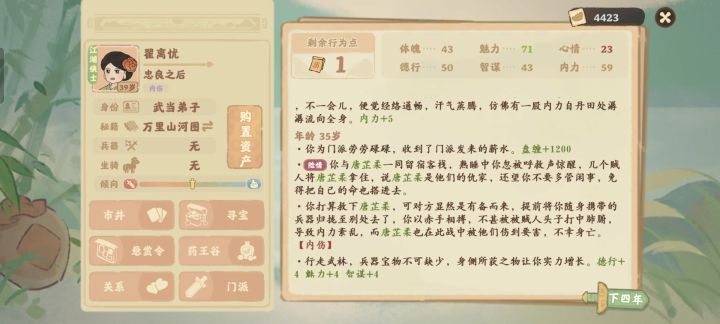 4423
江湖侠士
39岁
翟离忧
忠良之后
内伤
身份 武当弟子
秘籍 万里山河图
兵器 无
坐骑 无
倾向
购置资产
市井
寻宝
悬赏令
药王谷
关系
门派
剩余行为点
1
体魄 43 魅力 71 心情 23
德行 50 智谋 43 内力 59
，不一会儿，便觉经络通畅，汗气蒸腾，仿佛有一股内力自丹田处潺
潺流向全身。内力+5
年龄 35岁
·你为门派劳劳碌碌，收到了门派发来的薪水。盘缠+1200
·险情 你与唐芷柔一同留宿客栈，熟睡中你忽被呼救声惊醒，几个贼
人将唐芷柔拿住，说唐芷柔是他们的仇家，还望你不要多管闲事，免
得把自己的命也搭进去。
·你打算救下唐芷柔，可对方显然是有备而来，提前将你随身携带的
兵器归拢至别处去了，你以赤手相搏，不甚被被贼人头子打中肺腑，
导致内力紊乱，而唐芷柔也在此战中被他们伤到要害，不幸身亡。
【内伤】
·行走武林，兵器宝物不可缺少，身侧所获之物让你实力增长。德行+
4 魅力+4 智谋+4
下四年